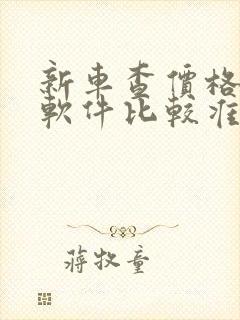 新車查價格
軟件比較准
蔣牧童